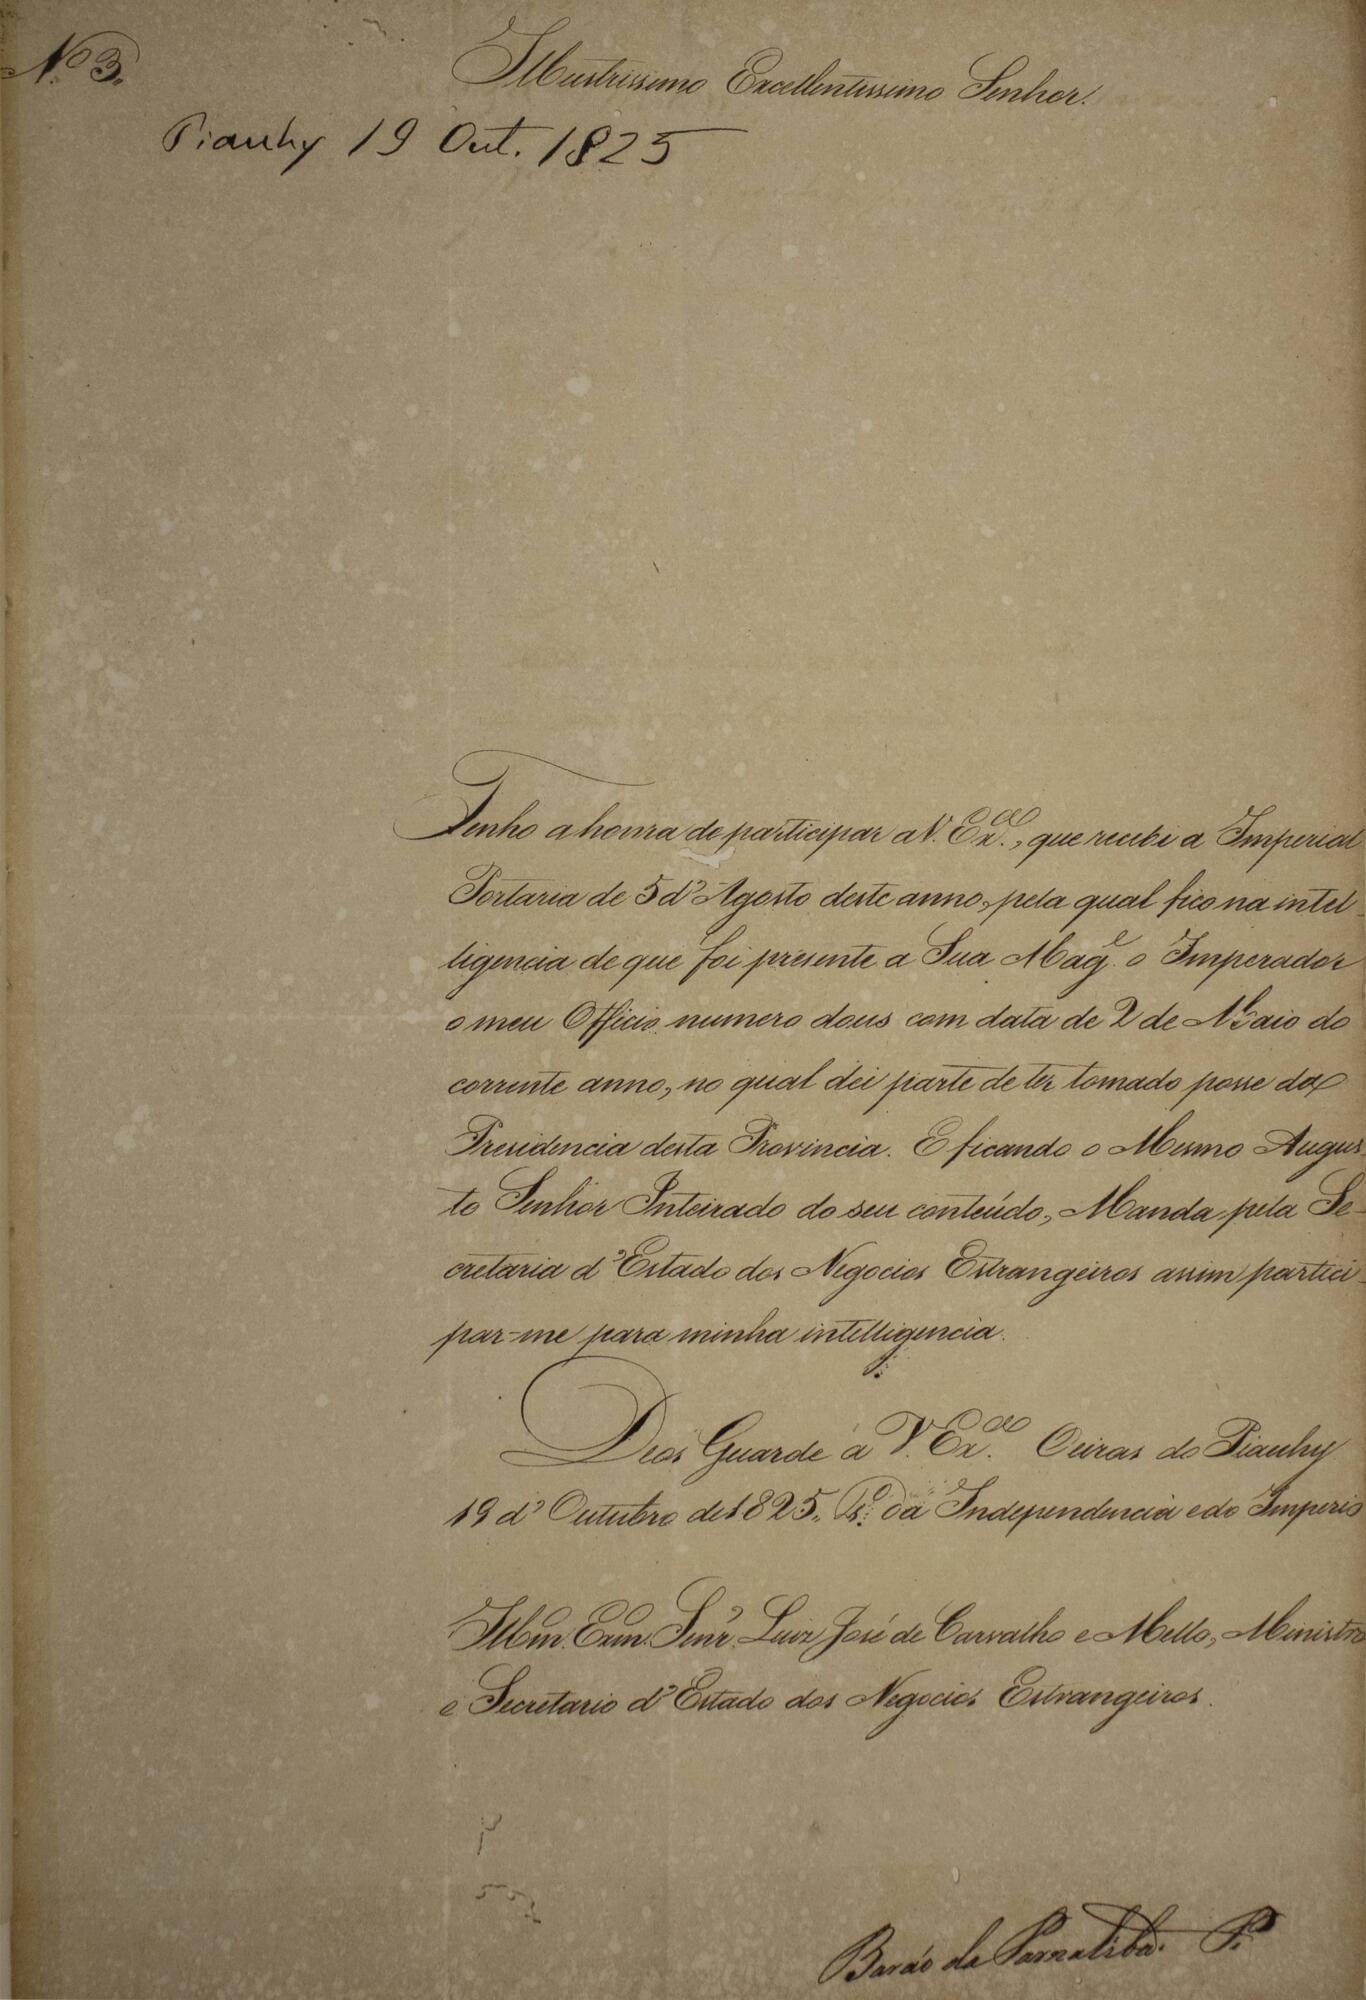 Nº 3.
Illustrissimo Excellentissimo Senhor.
Piauhy 19 Out. 1825
Tenho a honra de participar a V. Exª., que recebi a Imperial
Portaria de 5 d'Agosto deste anno, pela qual fico na intel-
ligencia de que foi presente a Sua Mag.e o Imperador
o meu Officio numero dous com data de 2 de Maio do
corrente anno, no qual dei parte de ter tomado posse da
Presidencia desta Provincia. E ficando o Mesmo Augus-
to Senhor Inteirado do seu conteúdo, Manda pela Se-
cretaria d'Estado dos Negocios Estrangeiros assim partici-
par-me para minha intelligencia.
Deos Guarde a V. Exª. Oeiras do Piauhy
19 d'Outubro de 1825, da Independencia e do Imperio
Illmº. Exmº. Senr. Luiz José de Carvalho e Mello, Ministro
e Secretario d'Estado dos Negocios Estrangeiros.
Barão da Parnahiba. P.